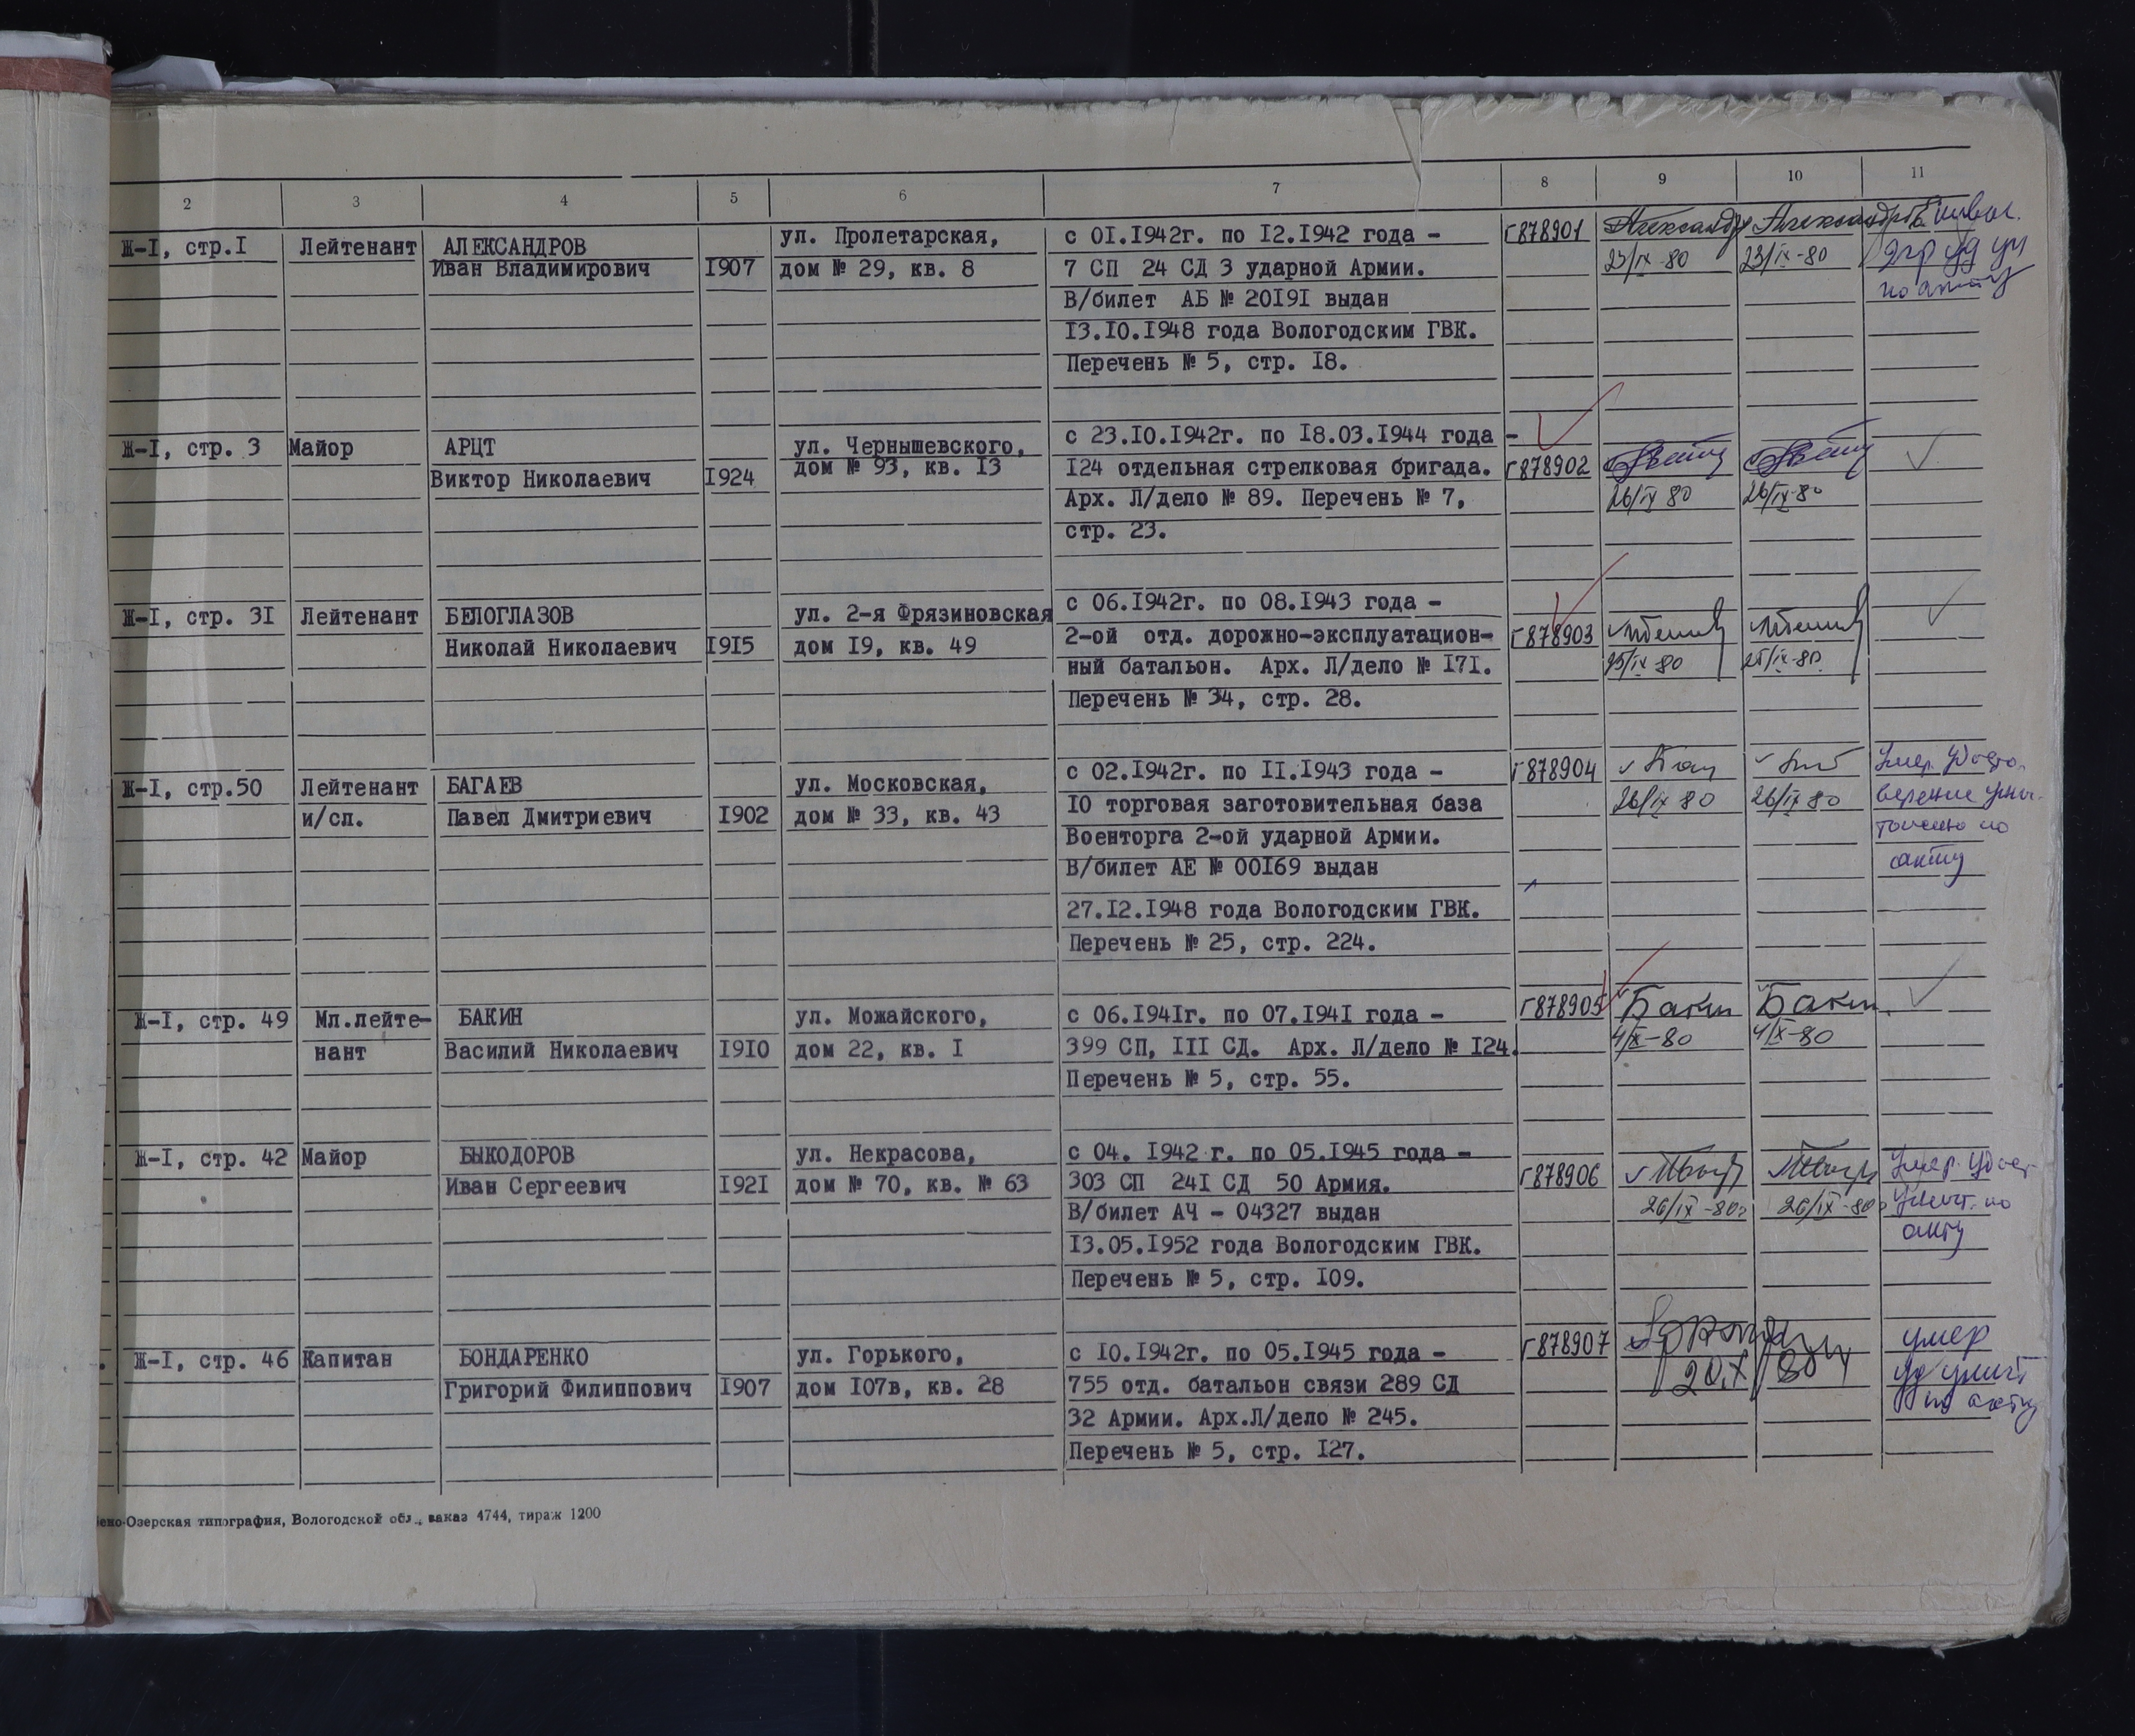 2 3 4 5 6 7 8 9 10 11
Ж-I, стр.I Лейтенант АЛЕКСАНДРОВ ул. Пролетарская, с OI.I942г. по I2.I942 года - Г878901
Иван Владимирович I907 дом № 29, кв. 8 7 СП 24 СД 3 ударной Армии. 23/IX-80 23/IX-80
В/билет АБ № 20I9I выдан по акту
I3.I0.I948 года Вологодским ГВК.
Перечень № 5, стр. I8.
Ж-I, стр. 3 Майор АРЦТ ул. Чернышевского, с 23.I0.I942г. по I8.03.I944 года -
Виктор Николаевич I924 дом № 93, кв. I3 I24 отдельная стрелковая бригада. Г878902
Арх. Л/дело № 89. Перечень № 7, 26/IX 80 26/IX-80
стр. 23.
Ж-I, стр. 3I Лейтенант БЕЛОГЛАЗОВ ул. 2-я Фрязиновская с 06.I942г. по 08.I943 года -
Николай Николаевич I9I5 дом I9, кв. 49 2-ой отд. дорожно-эксплуатацион- Г878903
ный батальон. Арх. Л/дело № I7I. 25/IX-80 25/IX-80
Перечень № 34, стр. 28.
Ж-I, стр.50 Лейтенант БАГАЕВ ул. Московская, с 02.I942г. по II.I943 года - Г878904 Умер. Удосто-
и/сл. Павел Дмитриевич I902 дом № 33, кв. 43 I0 торговая заготовительная база 26/IX 80 26/IX 80 верение уни-
Военторга 2-ой ударной Армии. тожено по
В/билет АЕ № 00I69 выдан акту
27.I2.I948 года Вологодским ГВК.
Перечень № 25, стр. 224.
Ж-I, стр. 49 Мл.лейте- БАКИН ул. Можайского, с 06.I94Iг. по 07.I94I года - Г878905 Бакин Бакин
нант Василий Николаевич I9I0 дом 22, кв. I 399 СП, III СД. Арх. Л/дело № I24. 4/X-80 4/X-80
Перечень № 5, стр. 55.
Ж-I, стр. 42 Майор БЫКОДОРОВ ул. Некрасова, с 04. I942 г. по 05.I945 года - Г878906 Умер. Удост.
Иван Сергеевич I92I дом № 70, кв. № 63 303 СП 24I СД 50 Армия. 26/IX-80г 26/IX-80г уничт. по
В/билет АЧ - 04327 выдан акту
I3.05.I952 года Вологодским ГВК.
Перечень № 5, стр. I09.
Ж-I, стр. 46 Капитан БОНДАРЕНКО ул. Горького, с I0.I942г. по 05.I945 года - Г878907 умер
Григорий Филиппович I907 дом I07в, кв. 28 755 отд. батальон связи 289 СД 20.X 80 уд уничт
32 Армии. Арх.Л/дело № 245. по акту
Перечень № 5, стр. I27.
ено-Озерская типография, Вологодской обл., заказ 4744, тираж 1200